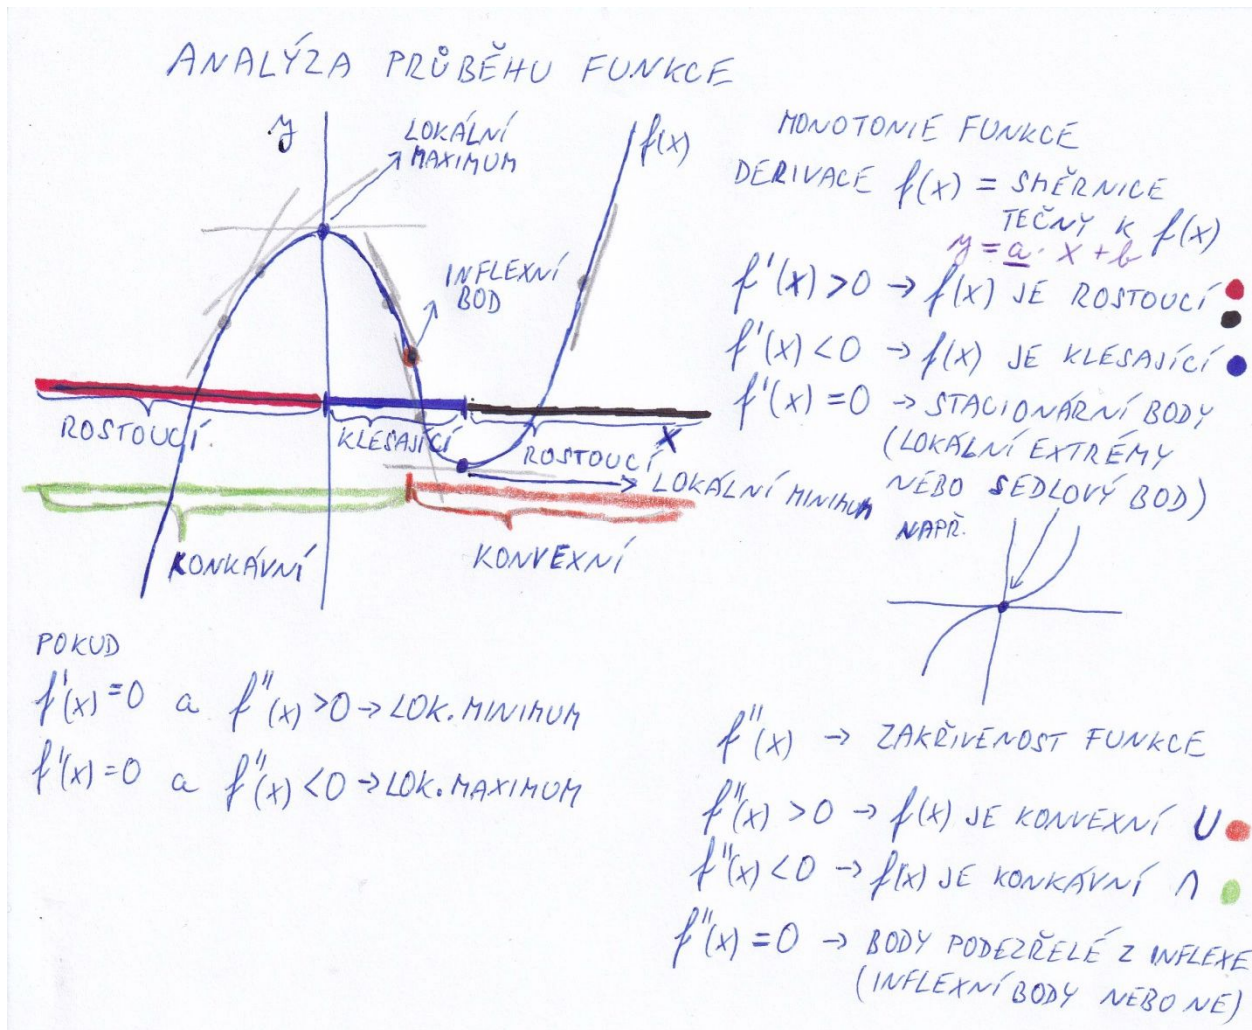 ANALÝZA PRŮBĚHU FUNKCE
y
LOKÁLNÍ
MAXIMUM
f(x)
INFLEXNÍ
BOD
ROSTOUCÍ
KLESAJÍCÍ
ROSTOUCÍ
X
LOKÁLNÍ MINIMUM
KONKÁVNÍ
KONVEXNÍ
MONOTONIE FUNKCE
DERIVACE f(x) = SMĚRNICE
TEČNY K f(x)
y = a · x + b
f'(x) > 0 → f(x) JE ROSTOUCÍ
f'(x) < 0 → f(x) JE KLESAJÍCÍ
f'(x) = 0 → STACIONÁRNÍ BODY
(LOKÁLNÍ EXTRÉMY
NEBO SEDLOVÝ BOD)
NAPŘ.
POKUD
f'(x) = 0 a f''(x) > 0 → LOK. MINIMUM
f'(x) = 0 a f''(x) < 0 → LOK. MAXIMUM
f''(x) → ZAKŘIVENOST FUNKCE
f''(x) > 0 → f(x) JE KONVEXNÍ ∪
f''(x) < 0 → f(x) JE KONKÁVNÍ ∩
f''(x) = 0 → BODY PODEZŘELÉ Z INFLEXE
(INFLEXNÍ BODY NEBO NE)